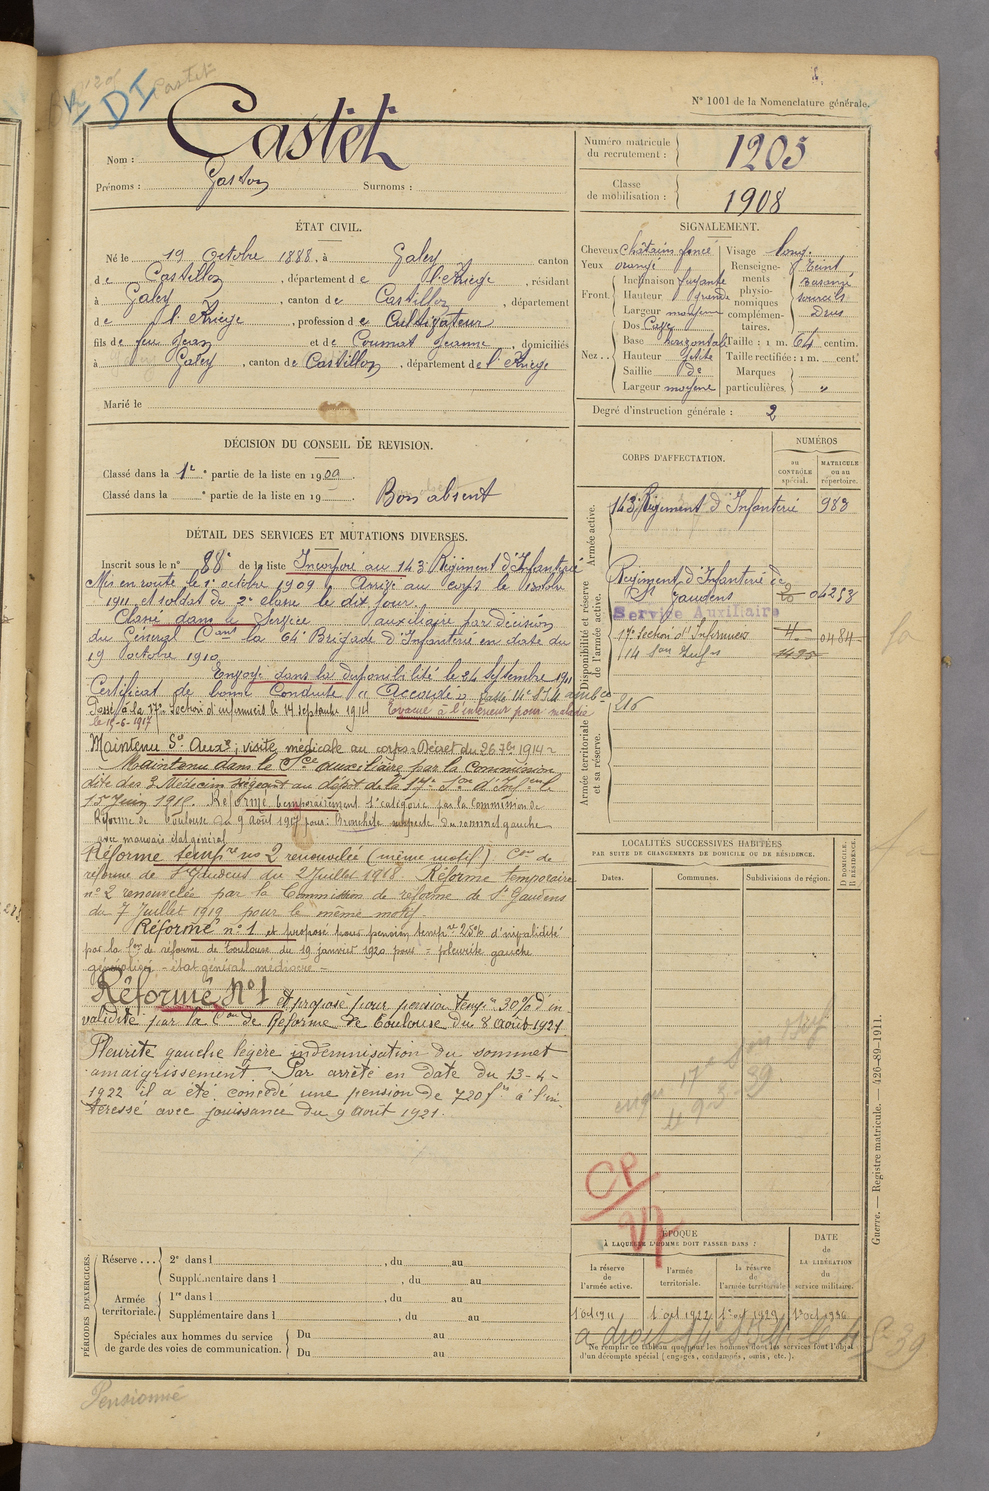 DI Castet
N° 1001 de la Nomenclature générale.
Nom : Castet
Prénoms : Gaston Surnoms :
Numéro matricule du recrutement : 1205
Classe de mobilisation : 1908
ÉTAT CIVIL.
Né le 19 Octobre 1888, à Galey, canton
de Castillon, département de l'Ariège, résidant
à Galey, canton de Castillon, département
de l'Ariège, profession de Cultivateur
fils de feu Jean et de Coumat Jeanne, domiciliés
à Galey, canton de Castillon, département de l'Ariège
Marié le
SIGNALEMENT.
Cheveux Châtains foncé
Yeux orangé
Front
Inclinaison fuyante
Hauteur grande
Largeur moyenne
Nez
Dos Cave
Base horizontale
Hauteur petite
Saillie pte
Largeur moyenne
Visage long
Renseignements physionomiques complémentaires. Teint basané sourcils Drus
Taille : 1 m. 64 centim.
Taille rectifiée : 1 m. cent.
Marques particulières. "
Degré d'instruction générale : 2
DÉCISION DU CONSEIL DE REVISION.
Classé dans la 1re partie de la liste en 1909.
Classé dans la e partie de la liste en 19 .
Bon absent
CORPS D'AFFECTATION.
NUMÉROS
au CONTRÔLE spécial.
MATRICULE ou au répertoire.
Armée active.
143e Régiment d'Infanterie 983
Disponibilité et réserve de l'armée active.
Régiment d'Infanterie de St Gaudens 04258
Service Auxiliaire
17e Section d'Infirmiers 0484
Armée territoriale et sa réserve.
216
DÉTAIL DES SERVICES ET MUTATIONS DIVERSES.
Inscrit sous le n° 98 de la liste Incorporé au 143e Régiment d'Infanterie
Mis en route le 1er octobre 1909. Arrivé au corps le
et soldat de 2e classe le dit jour.
Classé dans le Service auxiliaire par décision
du Général Cant la 64e Brigade d'Infanterie en date du
19 octobre 1910
Envoyé dans la disponibilité le 24 Septembre 1911
Certificat de bonne Conduite "Accordé".
Passé à la 17e Section d'infirmiers le 14 septembre 1914 Evacué à l'intérieur pour maladie
le 15-6-1917
Maintenu Sce Auxre, visite médicale au corps Décret du 26 7bre 1914
Maintenu dans le Sce auxiliaire par la Commission
dite des 3 Médecins siégeant au dépôt de la 17e Son d'Infers le
15 Juin 1915. Réformé temporairement 1e catégorie par la Commission de
Réforme de Toulouse du 9 Août 1917 pour: Bronchite suspecte du sommet gauche
avec mauvais état général
Réforme tempre no 2 renouvelée (même motif) Con de
réforme de St Gaudens du 2 Juillet 1918. Réforme temporaire
n° 2 renouvelée par la Commission de réforme de St Gaudens
du 7 Juillet 1919 pour le même motif.
Réformé n° 1 et proposé pour pension tempre 25% d'invalidité
par la Con de réforme de Toulouse du 19 janvier 1920 pour = pleurite gauche
généralisée - état général médiocre -
Réformé N° 1 et proposé pour pension tempre 30% d'in
validité par la Con de Réforme de Toulouse du 8 août 1921
Pleurite gauche légère indemnisation du sommet
amaigrissement Par arrêté en date du 13-4-
1922 il a été concédé une pension de 720f à l'in-
téressé avec jouissance du 9 août 1921.
LOCALITÉS SUCCESSIVES HABITÉES
PAR SUITE DE CHANGEMENTS DE DOMICILE OU DE RÉSIDENCE.
Dates. Communes. Subdivisions de région. D. DOMICILE. R. RÉSIDENCE.
le 9-3-39
CP
PÉRIODES D'EXERCICES.
Réserve... 2e dans l , du au
Supplémentaire dans l , du au
Armée territoriale. 1re dans l , du au
Supplémentaire dans l , du au
Spéciales aux hommes du service de garde des voies de communication. Du au
Du au
ÉPOQUE
À LAQUELLE L'HOMME DOIT PASSER DANS :
la réserve de l'armée active.
l'armée territoriale.
la réserve de l'armée territoriale.
DATE de LA LIBÉRATION du service militaire.
1 oct 1911 1er oct 1922 1er oct 1929 1er oct 1936
Ne remplir ce tableau que pour les hommes dont les services font l'objet
d'un décompte spécial (engagés, condamnés, omis, etc.).
Guerre. — Registre matricule. — 426-89-1911.
Pensionné